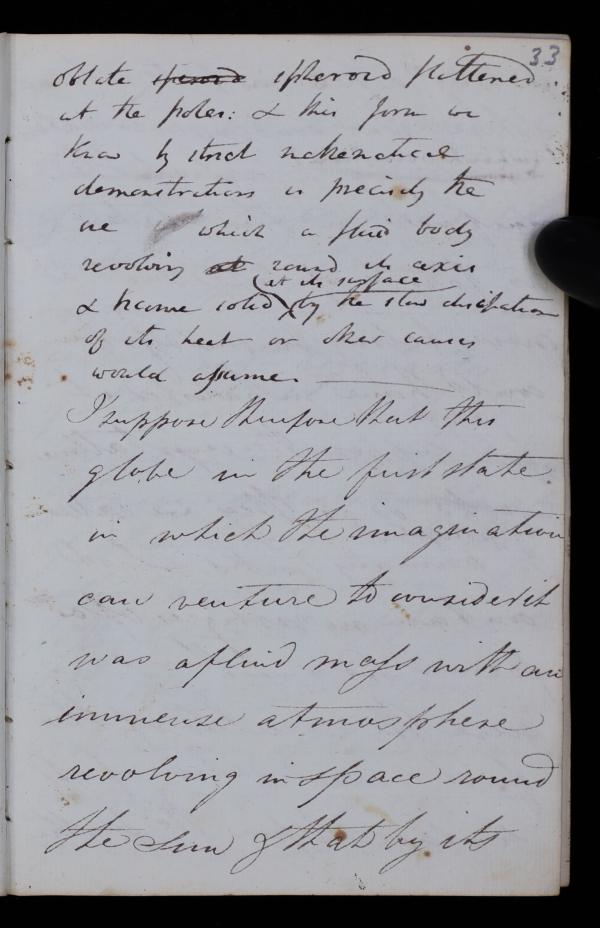 33
oblate spheroid flattened
at the poles: & this form we
know by strict mathematical
demonstrations is precisely the
one which a fluid body
revolving at round its axis
at its surface
& become solid by the slow dissipation
of its heat or other causes
would assume.
I suppose therefore that this
globe in the first state
in which the imagination
can venture to consider it
was a fluid mass with an
immense atmosphere
revolving in space round
the sun & that by its